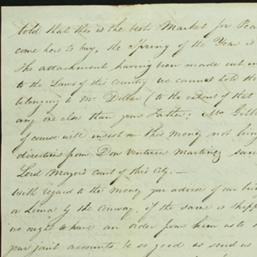 told that this is the best Market for Pea
come here to buy, the Spring of the Year is
The attachment having been made out in
to the Laws of this Country we cannot hold the
belonging to Mr Dillon (to the extent of that
any one else than your Father; Mr Gill
of course will insist on this Money not being
directions from Don Ventura Martinez
Lord Mayors Court of this City. —
With regard to the Money you advise of our
on Lima by the Conway, if the same is shipp
we ought to have an order from him
your joint accounts be so good as send us